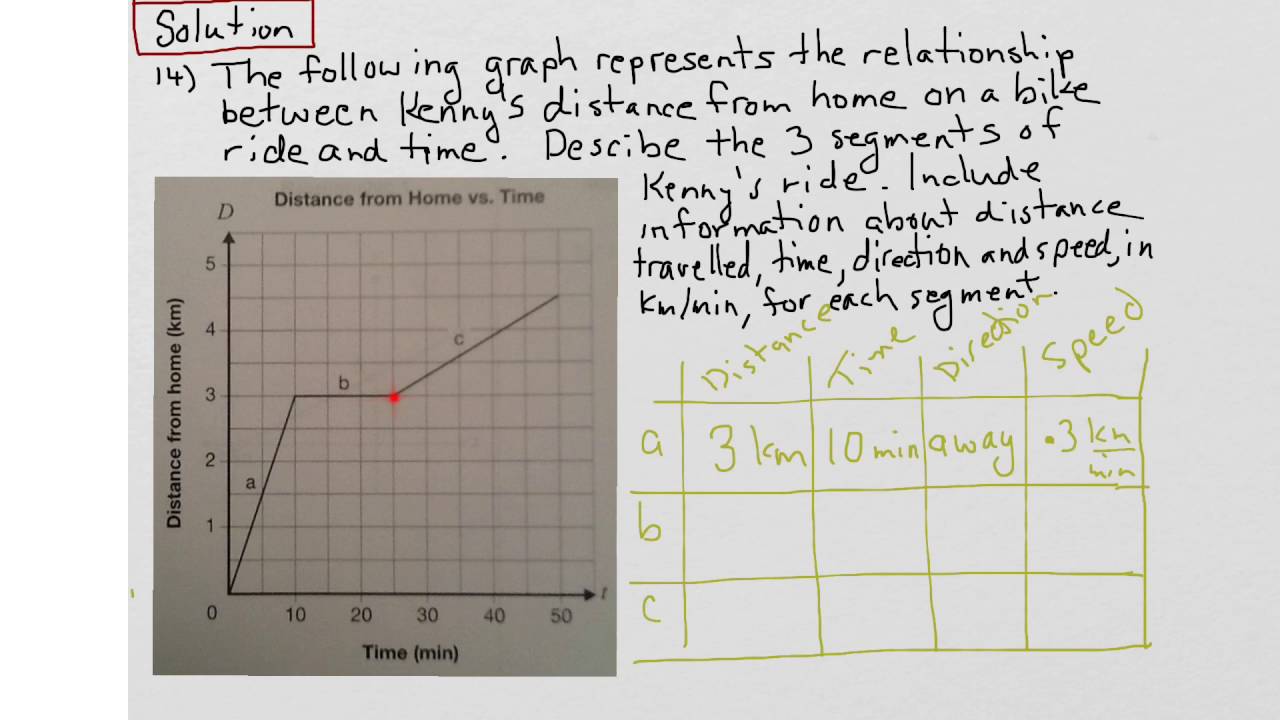 Solution
14) The following graph represents the relationship
between Kenny's distance from home on a bike
ride and time. Descibe the 3 segments of
Kenny's ride. Include
information about distance
travelled, time, direction and speed, in
km/min, for each segment.
Distance from Home vs. Time
D
5
4
3
2
1
0
10 20 30 40 50
t
a
b
c
Distance from home (km)
Time (min)
Distance Time Direction Speed
a 3 km 10 min away .3 km/min
b
c